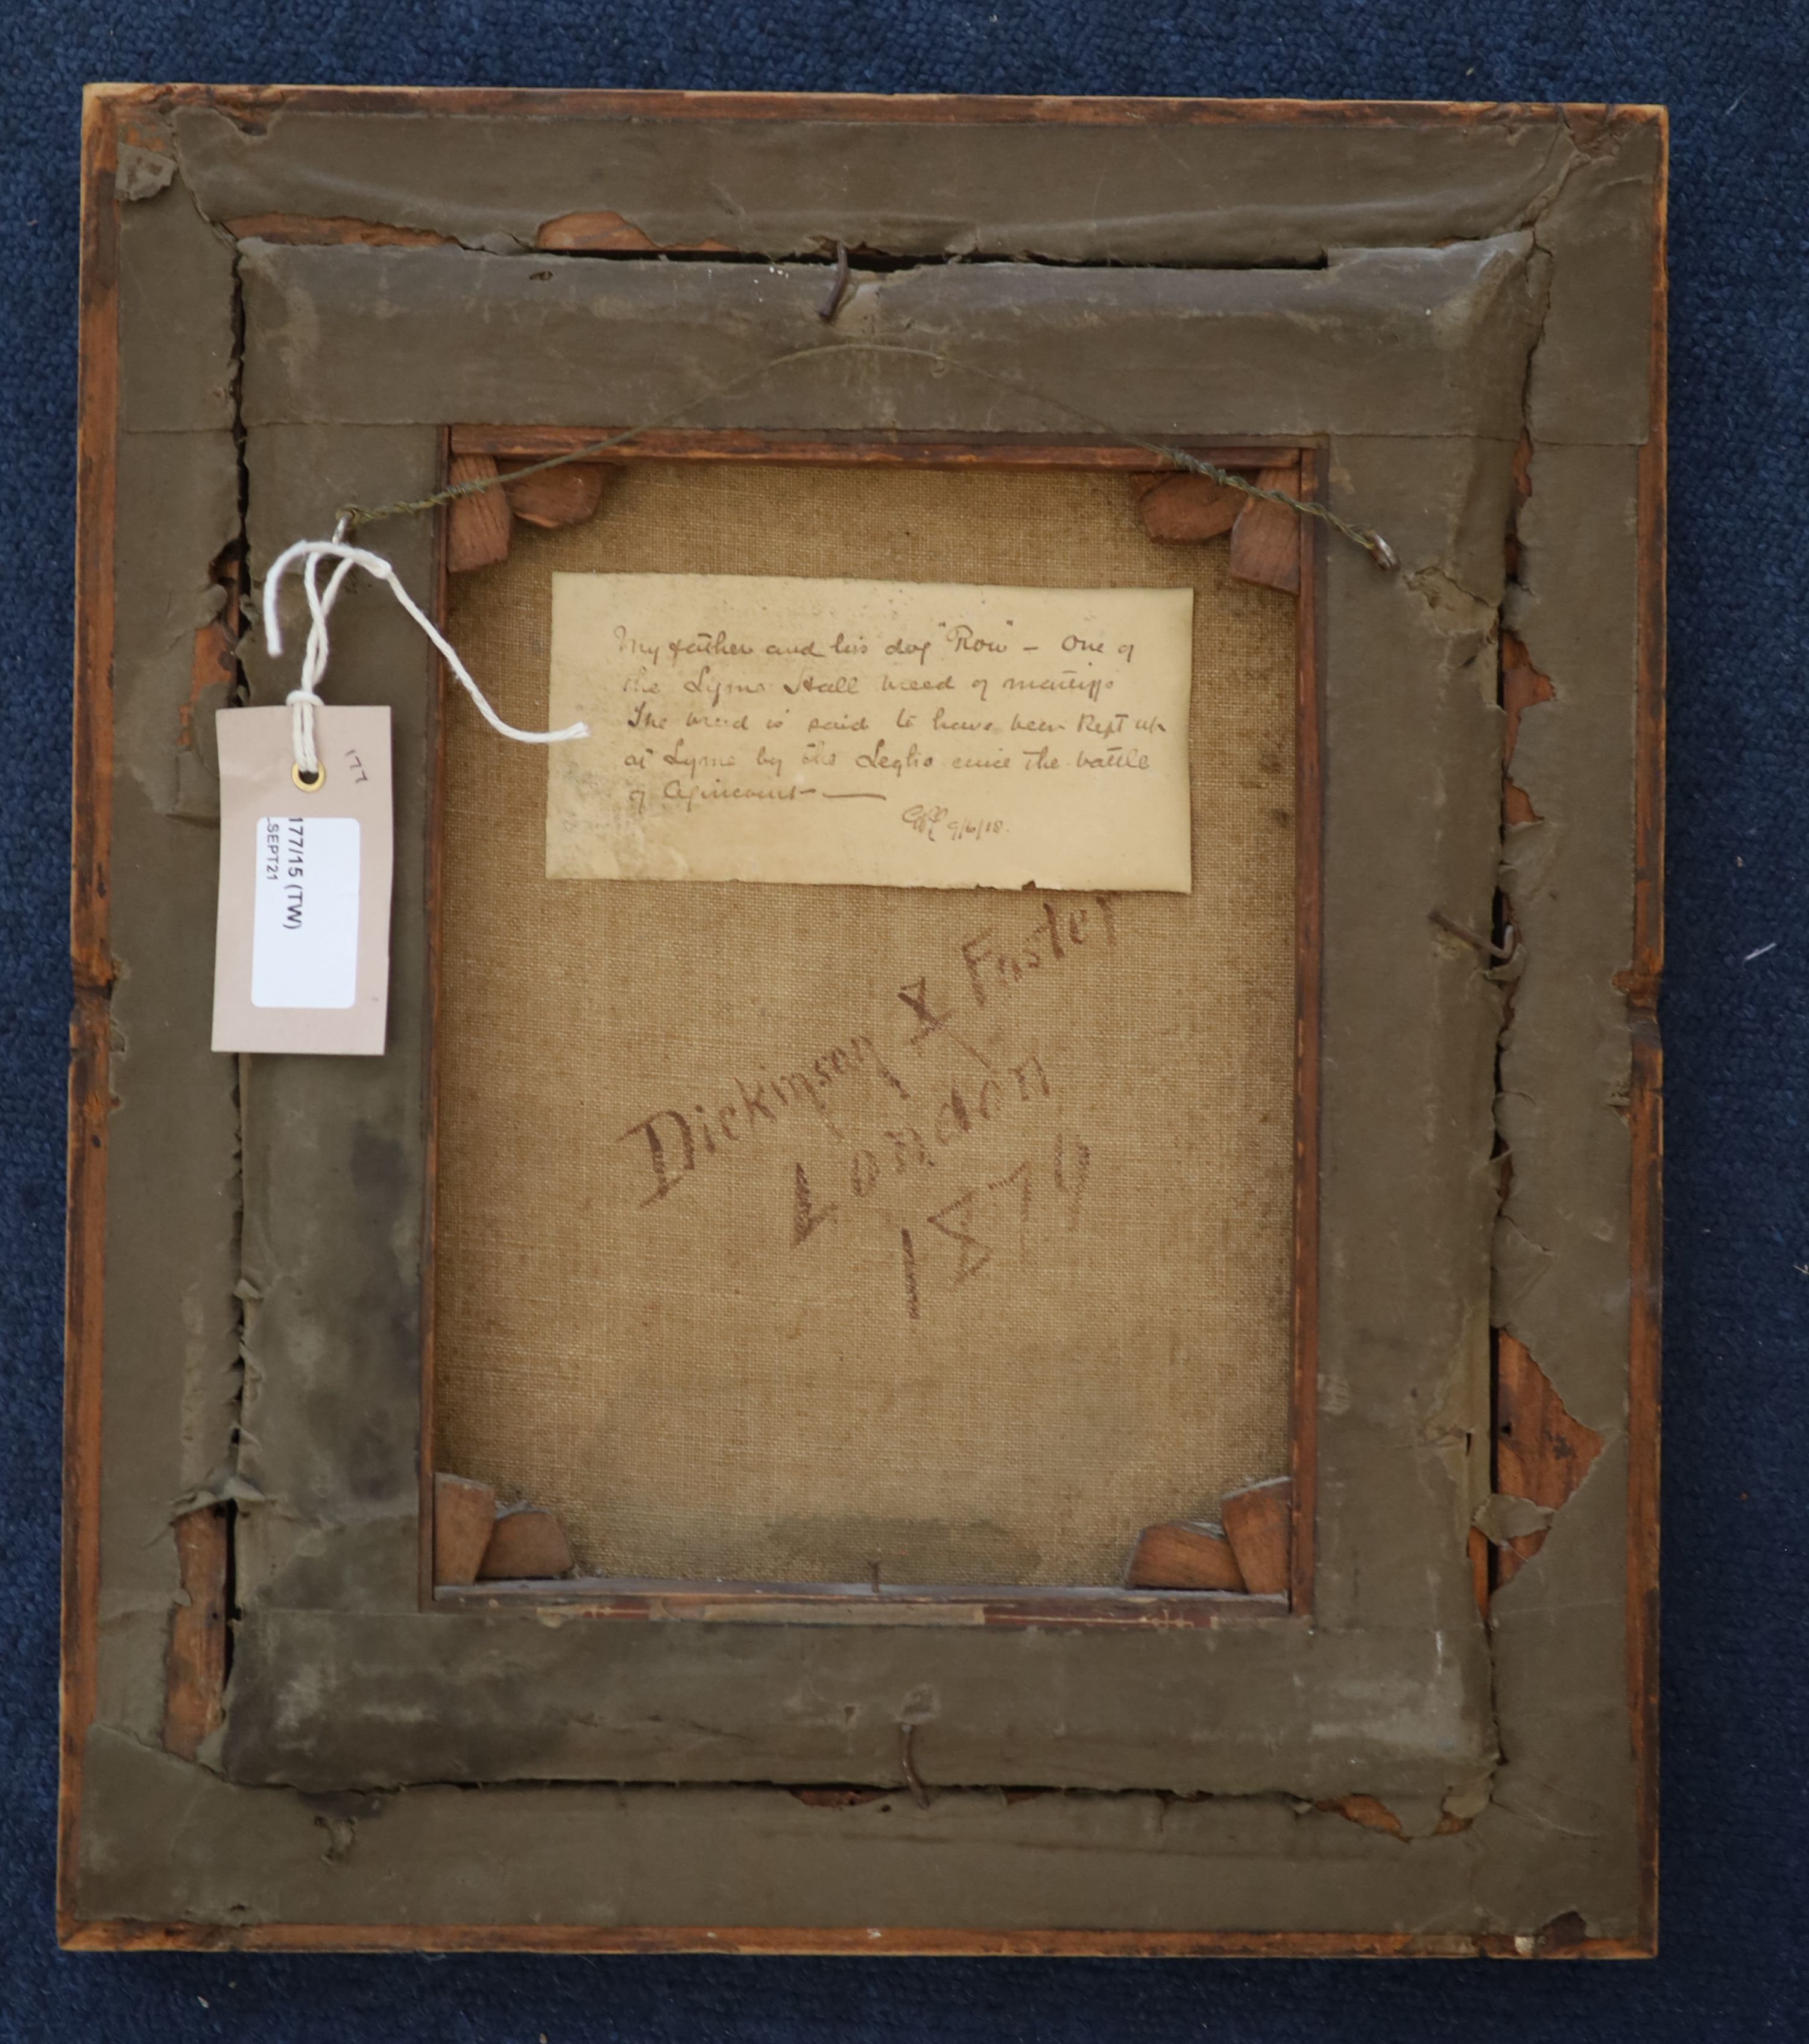 My father and his dog "Rou" – One of
the Lyme Hall breed of mastiffs
The breed is said to have been kept up
at Lyme by the Leghs since the battle
of Agincourt —
9/6/18.
Dickinson & Foster
London
1879
177
177/15 (TW)
SEPT21